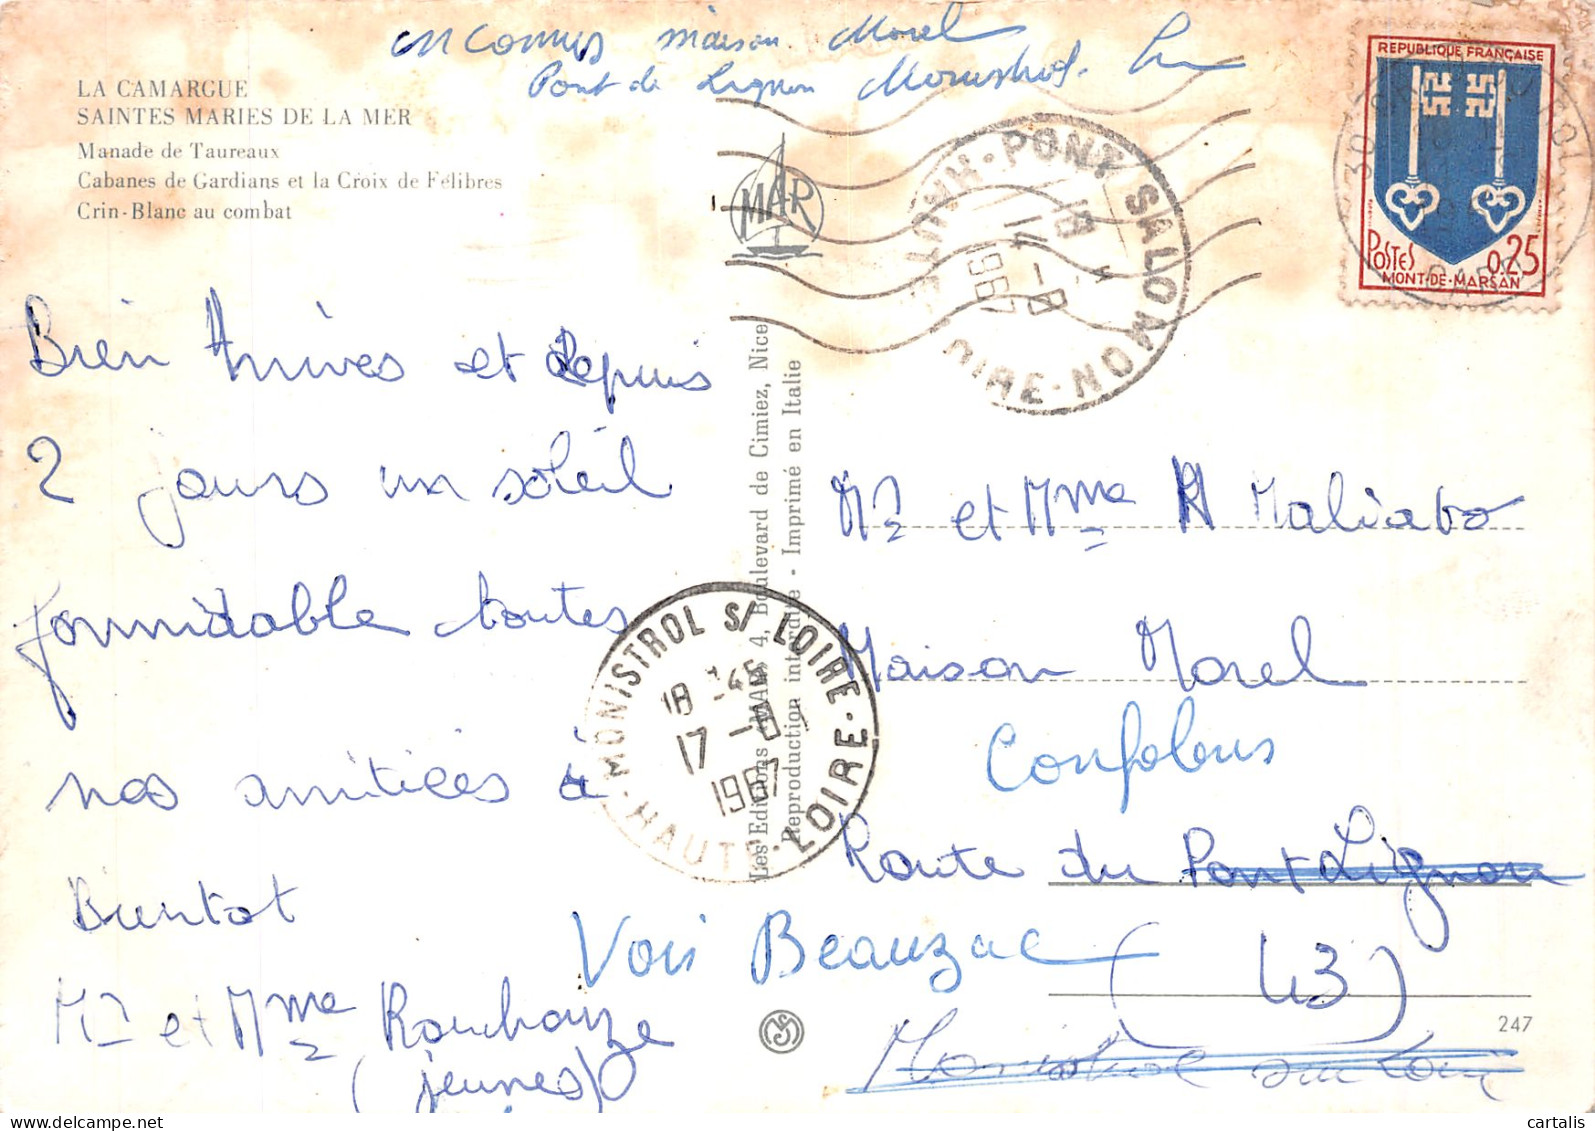 inconnus maison Morel
Pont de Lignon Monistrol.
LA CAMARGUE
SAINTES MARIES DE LA MER
Manade de Taureaux
Cabanes de Gardians et la Croix de Félibres
Crin-Blanc au combat
MAR
PONT SALOMON
HAUTE LOIRE
18
14 -8
1967
REPUBLIQUE FRANÇAISE
POSTES 0.25
MONT-DE-MARSAN
30
GARD
Bien Arrivés et depuis
2 jours un soleil
formidable toutes
nos amitiées à
Bientot
Mr et Mme Rouchouze
(jeunes)
Les Editions "MAR" 4, Boulevard de Cimiez, Nice
Reproduction interdite - Imprimé en Italie
MONISTROL S/ LOIRE
18 H45
17 -8
1967
HAUTE-LOIRE
Mr et Mme R Maliabo
Maison Morel
Confolens
Route du Pont Lignon
Voir Beauzac
(43)
Monistrol sur Loire
247
cartalis.com